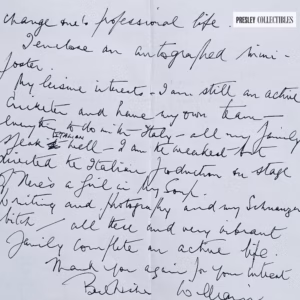 PRESLEY COLLECTIBLES
change one's professional life.
I enclose an autographed mini-
poster.
My leisure interests - I am still an active
Cricketer and have my own team -
everything to do with Italy - all my family
speak Italian well - I am the weakest but
directed the Italian production on stage
of There's a Girl in my Soup.
Writing and photography and my Schnauzer
bitch / all these and very vibrant
family complete an active life.
Thank you again for your interest
Best wishes